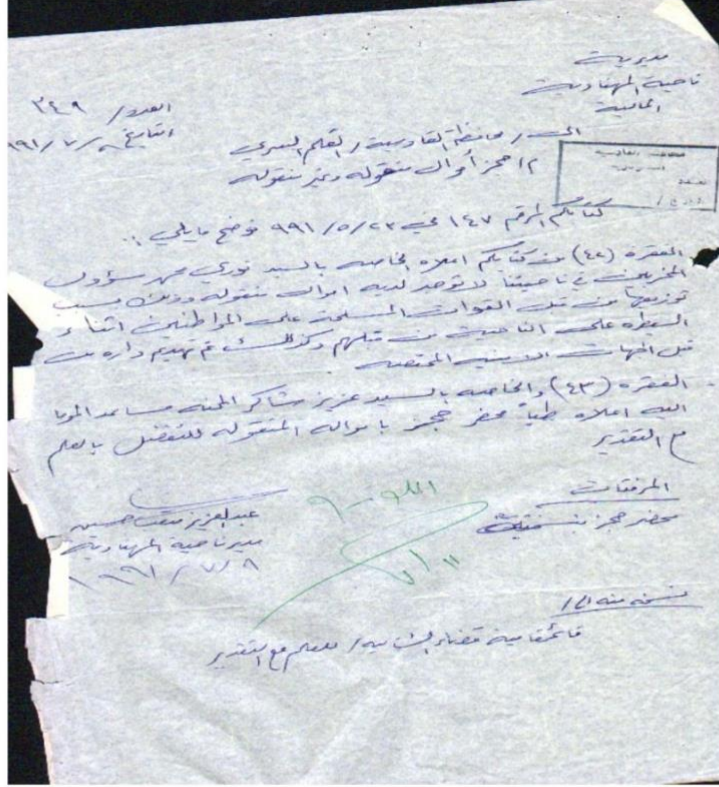 مديرية
ناحية المهناوية
المالية
العدد / ٣٤٩
التاريخ ٨ / ٧ / ٩٩١
الى / محافظة القادسية / القلم السري
م / حجز أموال منقوله وغير منقوله
كتابكم المرقم ١٤٧ في ٢٣ / ٥ / ٩٩١ نوضح مايلي :
الفقرة (٤٢) من كتابكم اعلاه الخاصه بالسيد نوري مسؤول
المخربين في ناحيتنا لا توجد لديه اموال منقوله وذلك بسبب
توزيعها من قبل القوات المسلحة على المواطنين اثناء
السيطره على الناحية من قبلهم وكذلك تم تهديم داره من
قبل الجهات الامنيه المختصه
الفقره (٤٣) والخاصه بالسيد عزيز شاكر مساعد الموما
اليه اعلاه طياً محضر حجز بامواله المنقوله للتفضل بالعلم
مع التقدير
المرفقات
محضر حجز بنسختين
عبد العزيز حسين
مدير ناحية المهناوية
٨ / ٧ / ١٩٩١
١١ / ٧
نسخه منه الى /
قائمقامية قضاء الشاميه / للعلم مع التقدير